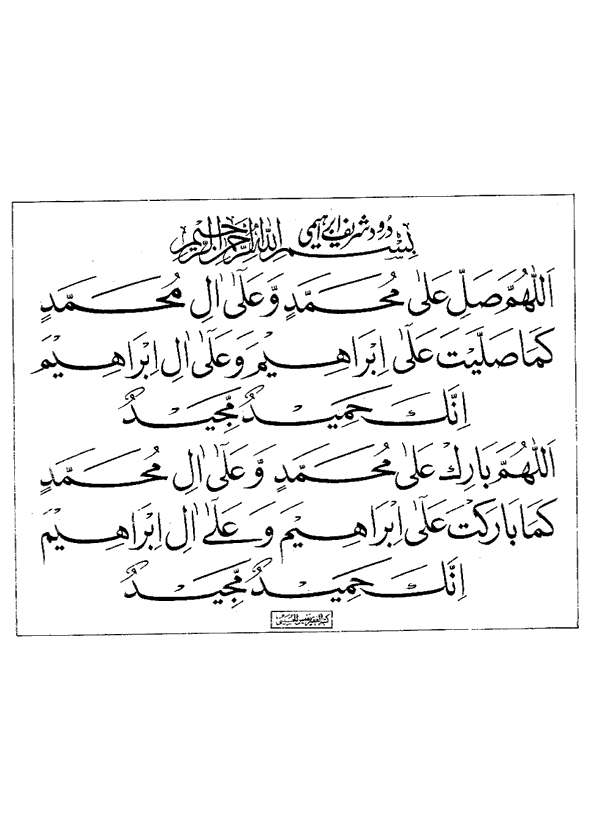 درود شریف ابراہیمی
بِسْمِ اللهِ الرَّحْمٰنِ الرَّحِيْمِ
اَللّٰهُمَّ صَلِّ عَلٰى مُحَمَّدٍ وَّعَلٰٓى اٰلِ مُحَمَّدٍ
كَمَا صَلَّيْتَ عَلٰٓى اِبْرَاهِيْمَ وَعَلٰٓى اٰلِ اِبْرَاهِيْمَ
اِنَّكَ حَمِيْدٌ مَّجِيْدٌ
اَللّٰهُمَّ بَارِكْ عَلٰى مُحَمَّدٍ وَّعَلٰٓى اٰلِ مُحَمَّدٍ
كَمَا بَارَكْتَ عَلٰٓى اِبْرَاهِيْمَ وَعَلٰٓى اٰلِ اِبْرَاهِيْمَ
اِنَّكَ حَمِيْدٌ مَّجِيْدٌ